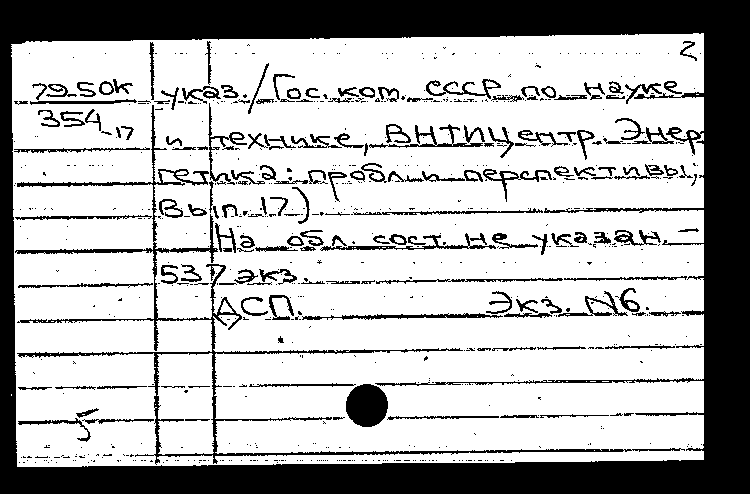 2
79-50к указ./Гос. ком. СССР по науке
354-17 и технике, ВНТИЦентр. Энер
гетика: пробл. и перспективы;
Вып. 17).
На обл. сост. не указан. –
537 экз.
ДСП. Экз. N6.
5